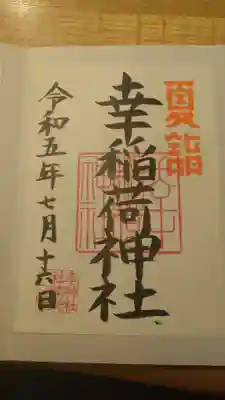 夏詣
幸稲荷神社
令和五年七月十六日